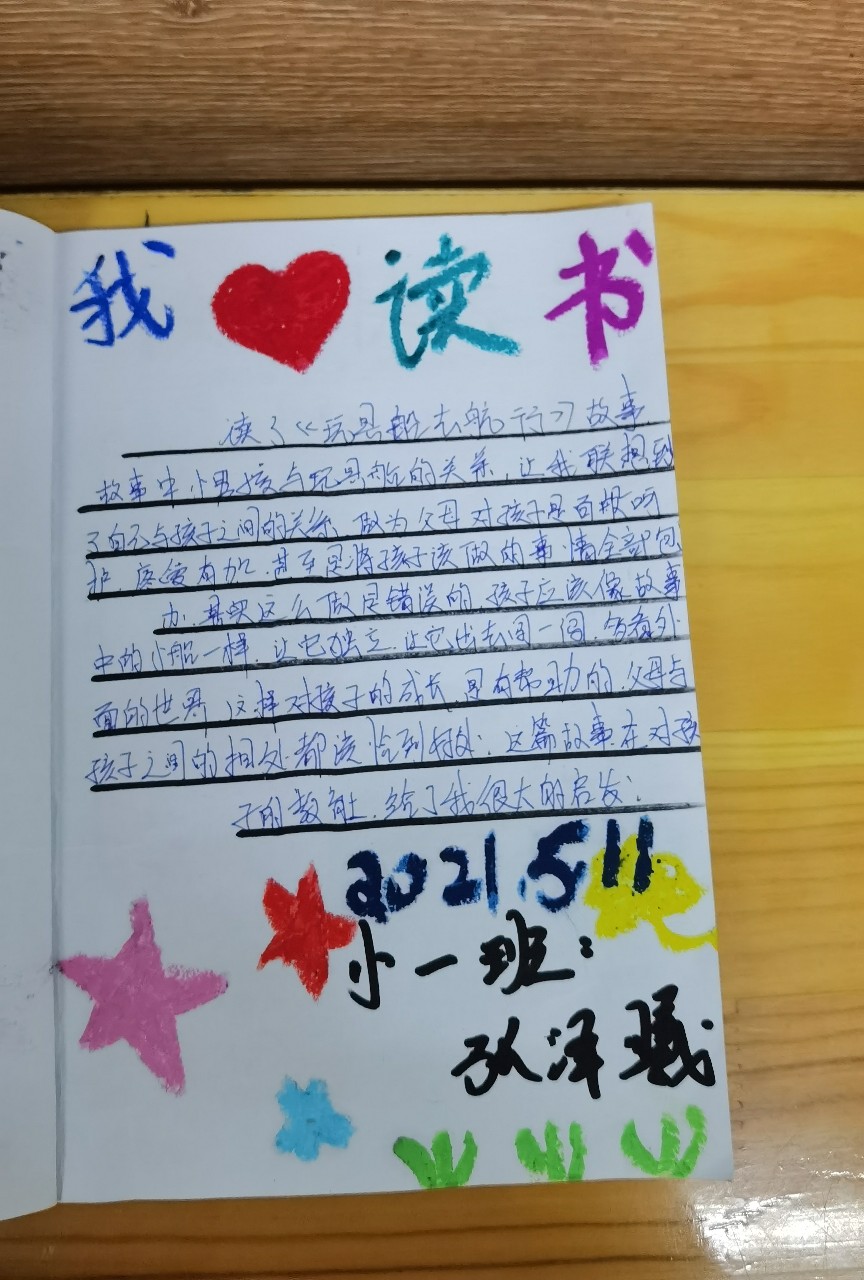 我 读 书
读了《玩具船去航行》故事
故事中小男孩与玩具船的关系,让我联想到
了自己与孩子之间的关系,做为父母对孩子是百般呵
护,疼爱有加,甚至是将孩子该做的事情全部包
办,其实这么做是错误的,孩子应该像故事
中的小船一样,让它独立,让它出去闯一闯,多看外
面的世界,这样对孩子的成长是有帮助的,父母与
孩子之间的相处都该恰到好处;这篇故事在对孩
子的教育上,给了我很大的启发;
2021.5.11
小一班:
泽曦